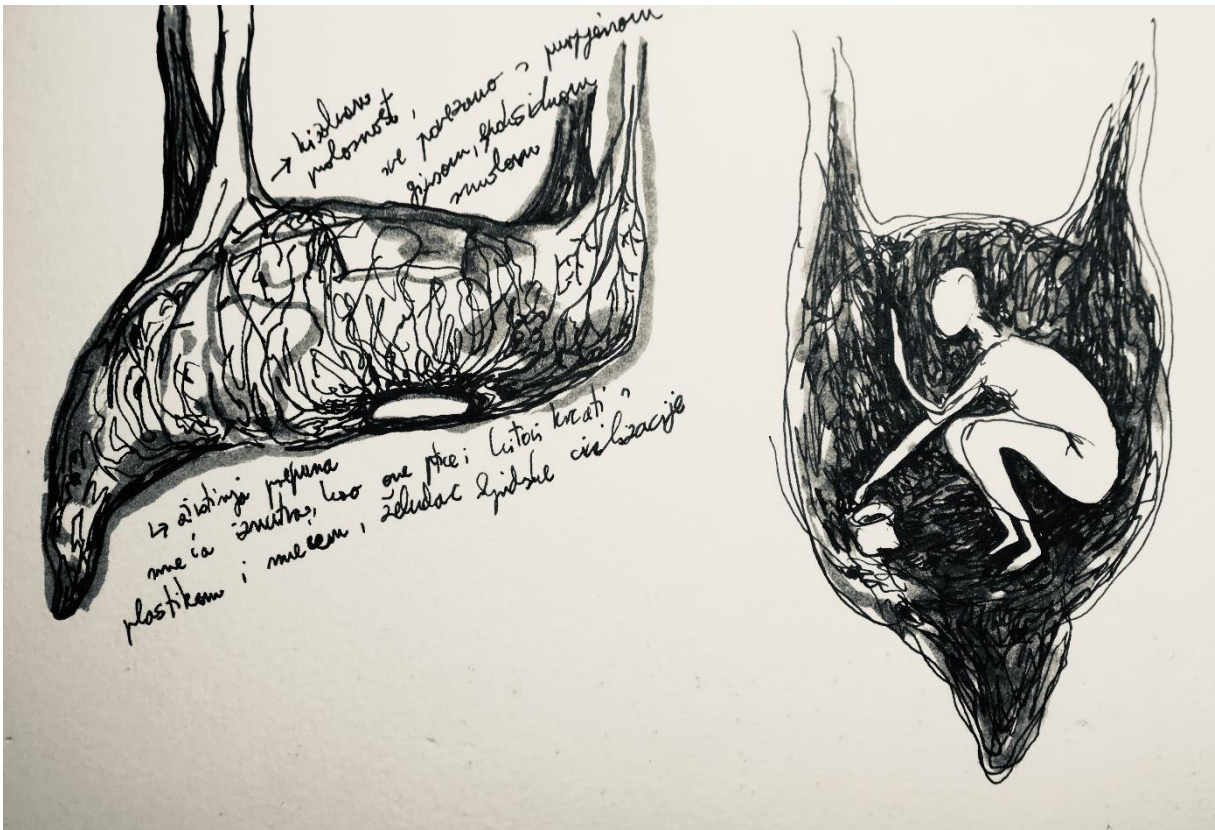 → kiselkasto
prolaznost,
sve povezano s purpjenom
gipsom, epoksidnom
smolom
↳ životinja prepuna
smeća iznutra, kao one ptice i kitovi krcati s
plastikom i smećem, želudac ljudske civilizacije